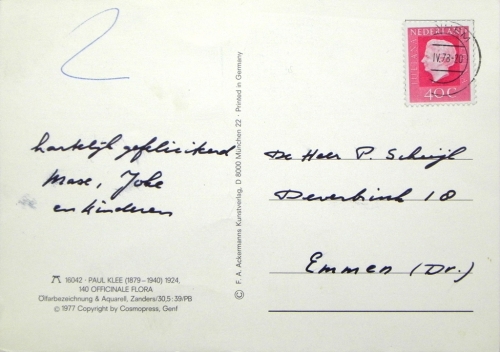 2
NEDERLAND
40 C
IV.78-20
hartelijk gefeliciteerd
Max, Joke
en kinderen
De Heer P. Schuijl
Deverbink 18
Emmen (Dr.)
© F. A. Ackermanns Kunstverlag, D 8000 München 22 · Printed in Germany
16042 · PAUL KLEE (1879–1940) 1924,
140 OFFICINALE FLORA
Ölfarbezeichnung & Aquarell, Zanders/30,5:39/PB
© 1977 Copyright by Cosmopress, Genf